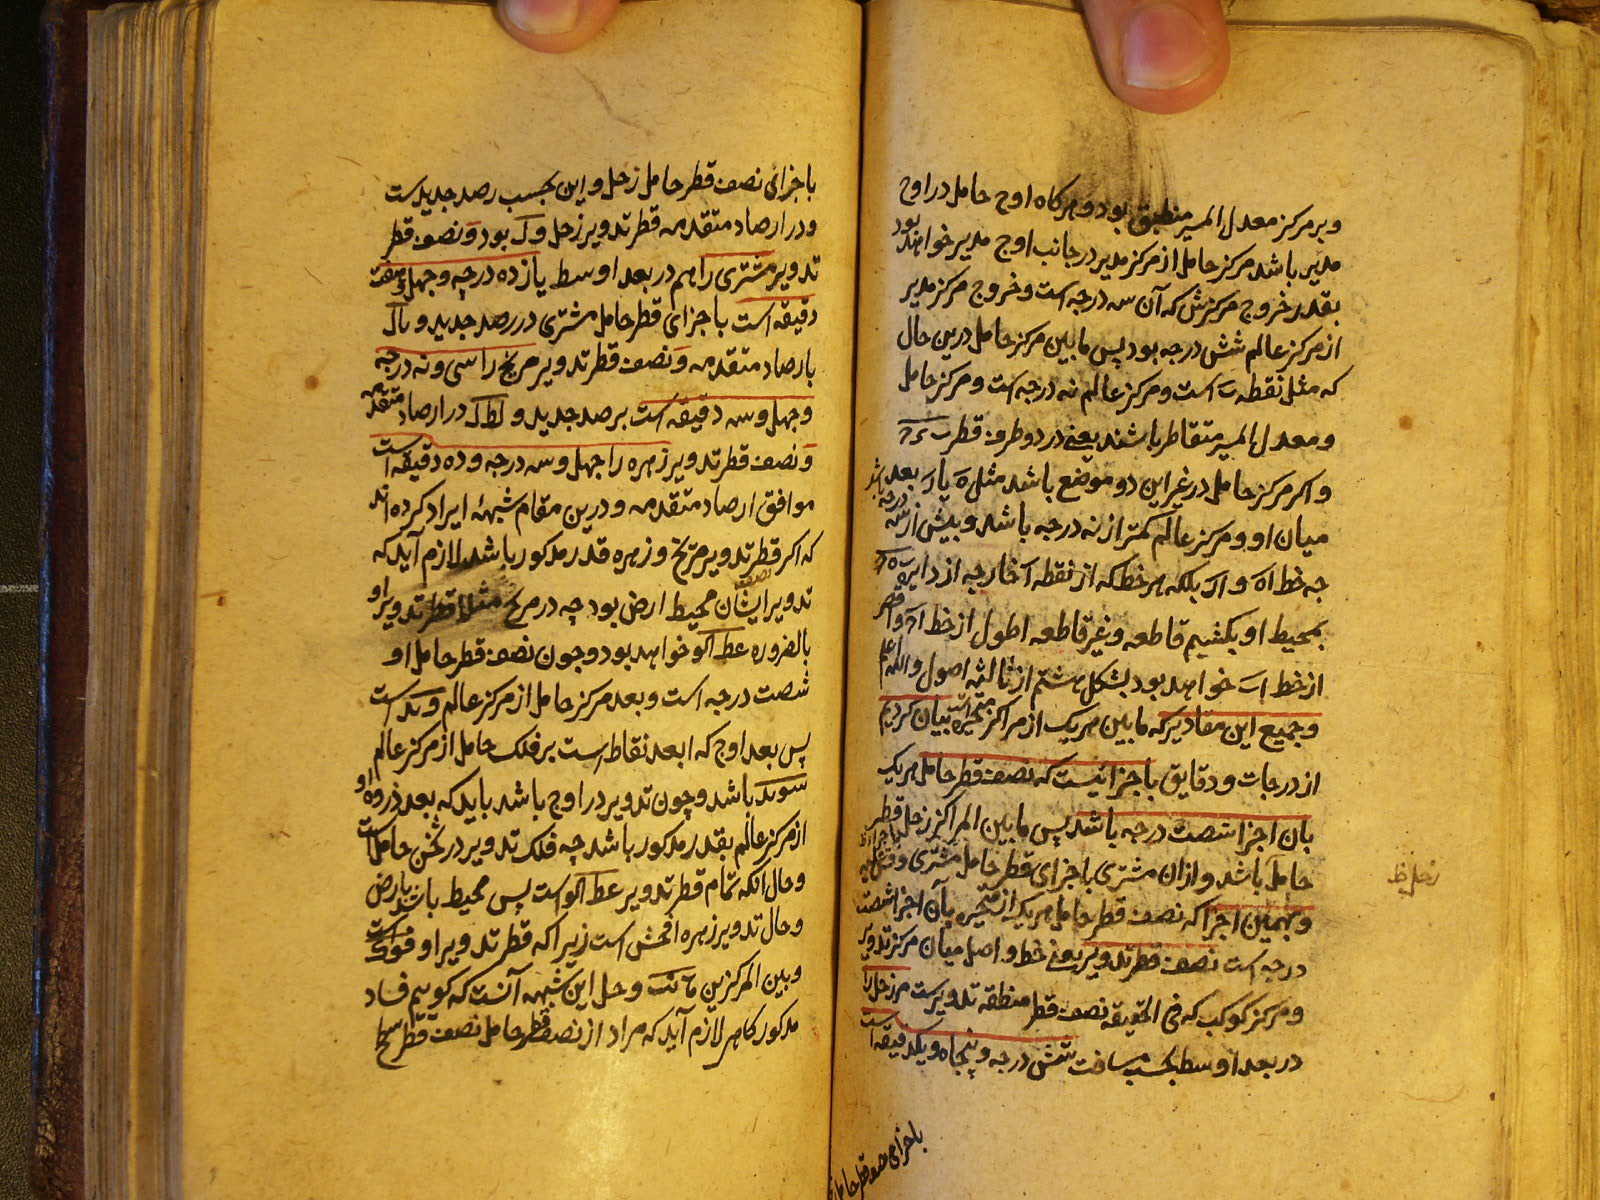 و بر مرکز معدل المسیر منطبق بود و هرکاه اوج حامل در اوج
مدیر باشد مرکز حامل از مرکز مدیر در جانب اوج مدیر خواهد بود
بقدر خروج مرکزش که آن سه درجه است و خروج مرکز مدیر
از مرکز عالم شش درجه بود پس مابین مرکز حامل درین حال
که مثل نقطه ب است و مرکز عالم نه درجه است و مرکز حامل
و معدل المسیر متقاطر باشند یعنے در دو طرف قطر
و اکر مرکز حامل در غیر این دو موضع باشد مثل ه یا ر بعد
میان او و مرکز عالم کمتر از نه درجه باشد و بیش از سه درجه باشد
چه خط اه و ار بلکه هر خط که از نقطه ا خارجه از دایره
بمحیط او بکشیم قاطعه و غیر قاطعه اطول از خط
از خط اب خواهد بود بشکل هشتم از ثالثه اصول والله اعلم
و جمیع این مقادیر که مابین هریک از مراکز متحیره است بیان کردیم
از درجات و دقایق باجزائیست که نصف قطر حامل هریک
بان اجزا شصت درجه باشد پس مابین المراکز زحل
حامل باشد و ازان مشتری باجزای قطر حامل مشتری و قس علیه
و بهمین اجزا که نصف قطر حامل هریک از متحیره بآن اجزا شصت
درجه است نصف قطر تدویر یعنے خط واصل میان مرکز تدویر
و مرکز کوکب که فی الحقیقه نصف قطر منطقه تدویرست مر زحل را
در بعد اوسط بحسب مسافت شش درجه و پنجاه و یکدقیقه است
باجزای نصف قطر حامل
زحل
باجزای نصف قطر حامل زحل و این بحسب رصد جدیدست
و در ارصاد متقدمه قطر تدویر زحل و ل بود و نصف قطر
تدویر مشتری را هم در بعد اوسط یازده درجه و چهل و هفت
دقیقه است باجزای قطر حامل مشتری در رصد جدید و یا ل
بارصاد متقدمه و نصف قطر تدویر مریخ را سی و نه درجه
و چهل و سه دقیقه است برصد جدید و لط ل در ارصاد متقدمه
و نصف قطر تدویر زهره را چهل و سه درجه و ده دقیقه است
موافق ارصاد متقدمه و درین مقام شبهۀ ایراد کرده اند
که اکر قطر تدویر مریخ و زهره قدر مذکور باشد لازم آید که
تدویر ایشان محیط ارض بود چه در مریخ مثلا نصف قطر تدویر او
بالضروره عط الو خواهد بود و چون نصف قطر حامل او
شصت درجه است و بعد مرکز حامل از مرکز عالم و بد است
پس بعد اوج که ابعد نقاط است بر فلک حامل از مرکز عالم
سو بد باشد و چون تدویر در اوج باشد باید که بعد ذروه او
از مرکز عالم بقدر مذکور باشد چه فلک تدویر در ثخن حامل است
و حال آنکه تمام قطر تدویر عط الو است پس محیط باشد بارض
و حال تدویر زهره افحش است زیرا که قطر تدویر او فوکست
و بین المرکزین و حل این شبهه آنست که کوییم فساد
مذکور کاهی لازم آید که مراد از نصف قطر حامل نصف قطر سطح